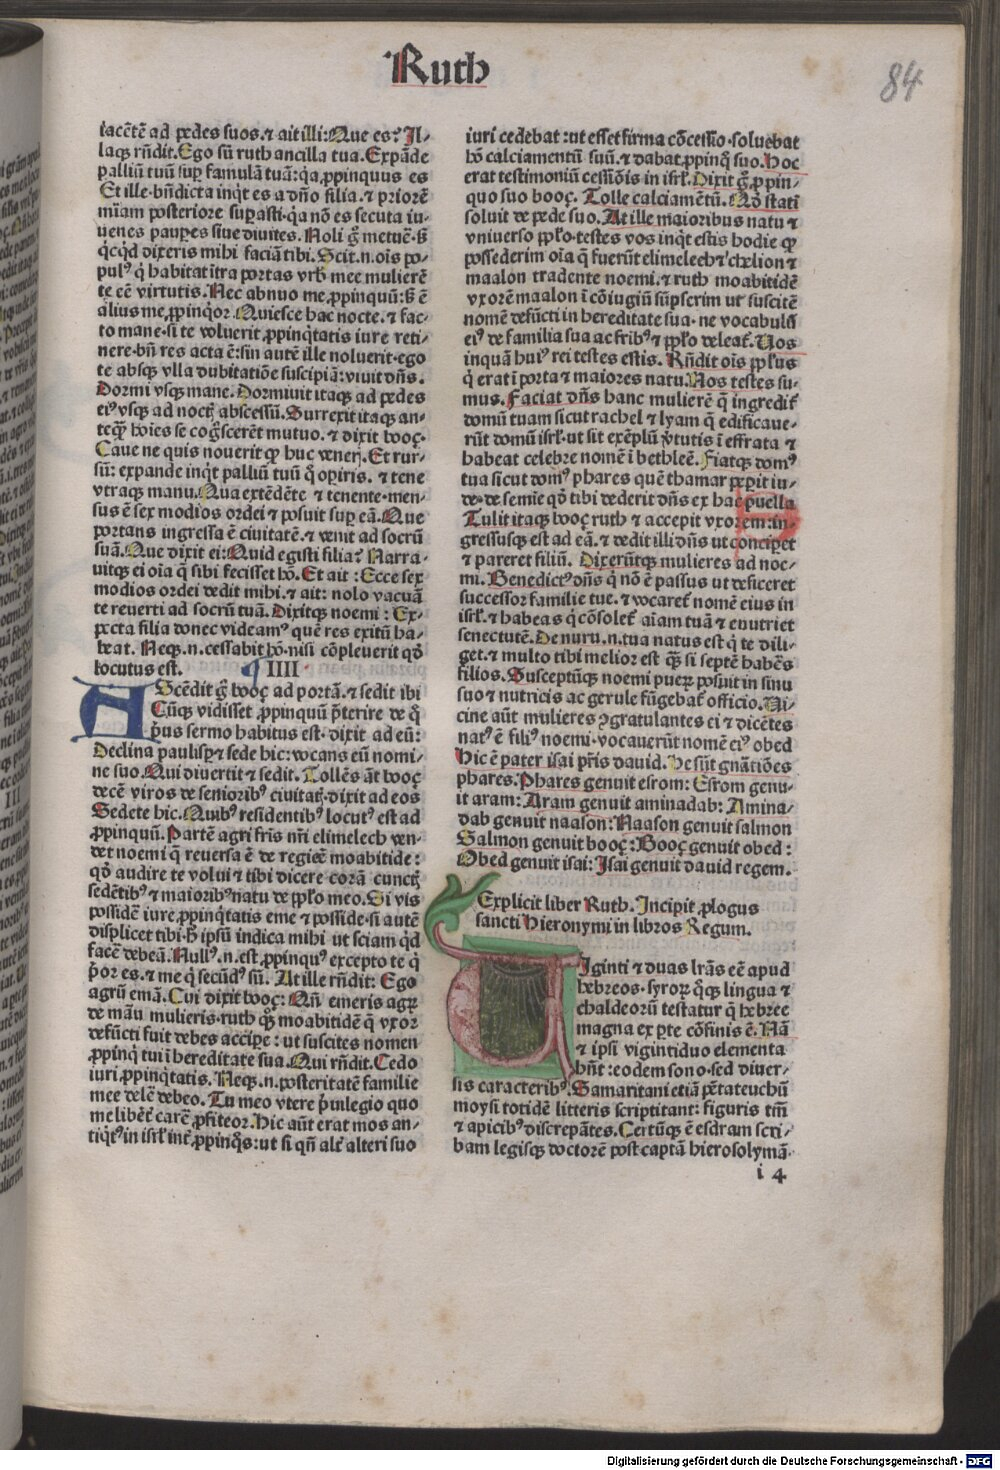 Ruth
84
iacētē ad pedes suos.⁊ ait illi:Que es? Il-
laqꝫ rñdit.Ego sū ruth ancilla tua.Expāde
palliū tuū suꝑ famulā tuā:qꝛ ꝓpinquus es
Et ille·bñdicta inqͥt es a dño filia.⁊ priorē
mīam posteriore suꝑasti·qꝛ nō es secuta iu-
uenes pauꝑes siue diuites.Noli g̊ metuē·sꝫ
qͥcqͥd dixeris mihi faciā tibi.Scit.n.ois po-
pulꝰ q̇ habitat ītra portas vrbꝭ mee mulierē
te eē virtutis.Nec abnuo me ꝓpinquū:sꝫ ē
alius me ꝓpinqͥor.Quiesce hac nocte.⁊ fac-
to mane·si te voluerit ꝓpinqͥtatis iure reti-
nere·bñ res acta ē:sin autē ille noluerit·ego
te absqꝫ vlla dubitatiōe suscipiā:viuit dñs.
Dormi vsqꝫ mane.Dormiuit itaqꝫ ad pedes
eiꝰ vsqꝫ ad noctꝭ abscessū.Surrexit itaqꝫ an-
teqꝫ̄ hoies se cog̊scerēt mutuo.⁊ dixit booç·
Caue ne quis nouerit ꝙ huc venerꝭ.Et rur-
sū: expande inqͥt palliū tuū q̊ oꝑiris. ⁊ tene
vtraqꝫ manu.Qua extēdēte ⁊ tenente·men-
sus ē sex modios ordei ⁊ posuit suꝑ eā.Que
portans ingressa ē ciuitatē.⁊ venit ad socrū
suā.Que dixit ei:Quid egisti filia? Narra-
uitqꝫ ei oīa q̄ sibi fecisset hō.Et ait : Ecce sex
modios ordei dedit mihi.⁊ ait: nolo vacuā
te reuerti ad socrū tuā.Dixitqꝫ noemi : Ex-
pecta filia donec videamꝰ quē res exitū ha-
beat. Neqꝫ.n.cessabit hō·nisi cōpleuerit qđ
locutus est. ¶ IIII
AScēdit g̊ booç ad portā.⁊ sedit ibi
Cūqꝫ vidisset ꝓpinquū p̄terire de q̊
p̄us sermo habitus est·dixit ad eū:
Declina paulisꝑ⁊ sede hic:vocans eū nomi-
ne suo.Qui diuertit ⁊ sedit.Tollēs āt booç
decē viros de senioribꝰ ciuitatꝭ·dixit ad eos
Sedete hic.Quibꝰ residentibꝰ locutꝰ est ad
ꝓpinquū.Partē agri fr̄is nr̄i elimelech ven-
det noemi q̄ reuersa ē de regiōe moabitide :
qđ audire te volui ⁊ tibi dicere corā cunctꝭ
sedētibꝰ ⁊ maioribꝰ natu de pp̄lo meo.Si vis
possidē iure ꝓpinqͥtatis eme ⁊ posside·si autē
displicet tibi·h̄ ipsū indica mihi ut sciam qͥd
facē debeā.Nullꝰ.n.est ꝓpinquꝰ excepto te q̇
p̄or es.⁊ me q̇ secūdꝰ sū. At ille rñdit: Ego
agrū emā.Cui dixit booç: Qñ emeris agꝝ
de māu mulieris·ruth qͦꝫ moabitidē q̄ vxor
defūcti fuit debes acciꝑe : ut suscites nomen
ꝓpinqͥ tui ī hereditate sua.Qui rñdit.Cedo
iuri ꝓpinqͥtatis. Neqꝫ.n.posteritatē familie
mee delē debeo. Tu meo vtere p̄uilegio quo
me libēt carē ꝓfiteor.Hic aūt erat mos an-
tiqͥtꝰ in isrł int ꝓpinqͦs:ut si qñ alt̄ alteri suo
iuri cedebat :ut esset firma cōcessio·soluebat
hō calciamentū suū.⁊ dabat ꝓpinqͦ suo.Hoc
erat testimoniū cessiōis in isrł.Dixit g̊ ꝓpin-
quo suo booç. Tolle calciamētū.Qđ statī
soluit de pede suo. At ille maioribus natu ⁊
vniuerso pp̄lo·testes vos inqͥt estis hodie ꝙ
possederim oīa q̄ fuerūt elimelech ⁊ chelion ⁊
maalon tradente noemi.⁊ ruth moabitidē
vxorē maalon ī cōiugiū sūpserim ut suscitē
nomē defūcti in hereditate sua·ne vocabulū
eiꝰ de familia sua ac fribꝰ ⁊ pp̄lo deleat. Vos
inquā huiꝰ rei testes estis. Rñdit ois pp̄lus
q̇ erat ī porta ⁊ maiores natu.Nos testes su-
mus. Faciat dñs hanc mulierē q̄ ingredit
domū tuam sicut rachel ⁊ lyam q̄ edificaue-
rūt domū isrł·ut sit exēplū v̓tutis ī effrata ⁊
habeat celebre nomē ī bethleē. Fiatqꝫ domꝰ
tua sicut domꝰ phares quē thamar peꝑit iu-
de·de semīe qđ tibi dederit dñs ex hac puella
Tulit itaqꝫ booç ruth ⁊ accepit vxorem:in-
gressusqꝫ est ad eā.⁊ dedit illi dñs ut conciperet
⁊ pareret filiū. Dixerūtqꝫ mulieres ad noe-
mi. Benedictꝰ dñs q̇ nō ē passus ut deficeret
successor familie tue. ⁊ vocaret nomē eius in
isrł.⁊ habeas q̇ cōsolet aīam tuā ⁊ enutriet
senectutē.De nuru.n.tua natus est q̇ te dili-
get.⁊ multo tibi melior est qꝫ̄ si septē habēs
filios. Susceptūqꝫ noemi pueꝝ posuit in sinu
suo ⁊ nutricis ac gerule fūgebat officio.Vi-
cine aūt mulieres ꝯgratulantes ei ⁊ dicētes
natꝰ ē filiꝰ noemi·vocauerūt nomē eiꝰ obed
Hic ē pater isai pr̄is dauid. He sūt gnātiōes
phares.Phares genuit esrom: Esrom genu-
it aram: Aram genuit aminadab: Amina-
dab genuit naason: Naason genuit salmon
Salmon genuit booç : Booç genuit obed :
Obed genuit isai: Isai genuit dauid regem.
Explicit liber Ruth. Incipit ꝓlogus
sancti Hieronymi in libros Regum.
VIginti ⁊ duas lr̄as eē apud
hebreos·syroꝝ qͦqꝫ lingua ⁊
chaldeorū testatur q̄ hebree
magna ex ꝑte cōfinis ē. Nā
⁊ ipsi vigintiduo elementa
hn̄t:eodem sono·sed diuer-
sis caracteribꝰ.Samaritani etiā pētateuchū
moysi totidē litteris scriptitant: figuris tm̄
⁊ apicibꝰ discrepātes.Certūqꝫ ē esdram scri-
bam legisqꝫ doctorē post captā hierosolymā
i 4
Digitalisierung gefördert durch die Deutsche Forschungsgemeinschaft - DFG